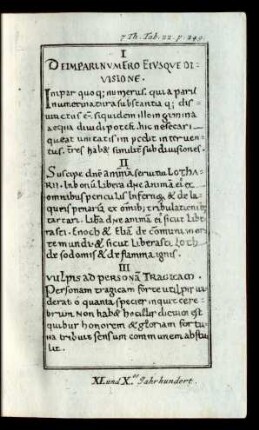 7 Th. Tab. 22. p. 249.
I
DE IMPARI NUMERO EIUSQUE DI
VISIONE.
Impar quoq; numerus. qui a pari
numero natura substantia q; dis
iunctus est. siquidem ille in gemina
aequa dividi potest. hic ne secari
queat unitatis impedit interven
tus. tres habet similiter subdivisiones.
II
Suscipe dne animā servi tui LOTHA
RII. Libera dne animā ei ex
omnibus periculis Infernorū & de la
queis penarū et omnib; tribulationib;
tartari. Liba dne animā ei sicut libe
rasti. Enoch & Eliā de comuni mor
te mundi & sicut Liberasti. Loth
de sodomis & de flamma ignis.
III
VULPIS AD PERSONĀ TRAGICAM.
Personam tragicam forte vulpis ui
derat o quanta species inquit cere
brum Non habet hoc illis dictum est
quibus honorem & gloriam fortu
na tribuit sensum communem abstu
lit.
XI. und X. Jahrhundert.